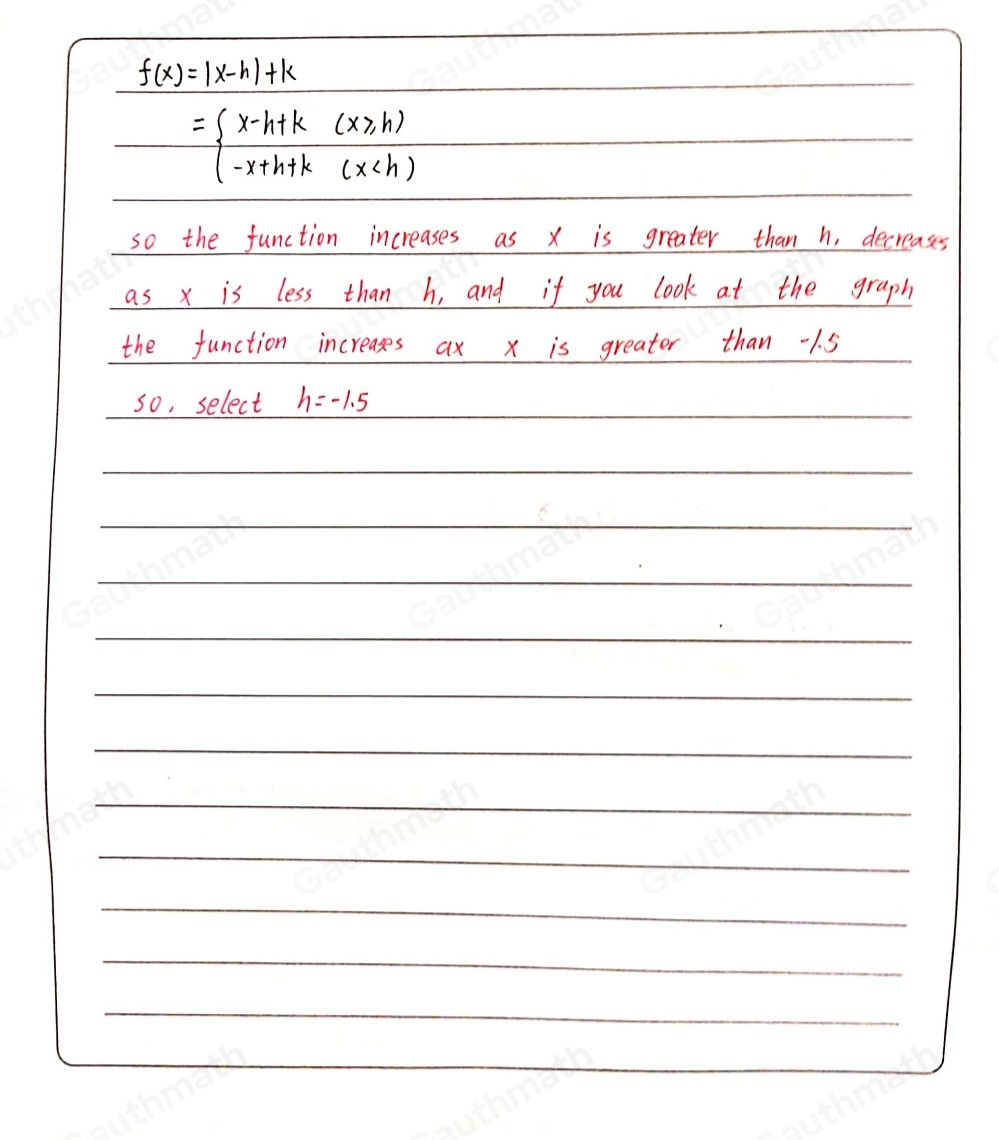 f(x)=|x-h|+k
={ x-h+k (x≥h)
-x+h+k (x<h)
so the function increases as x is greater than h, decreases
as x is less than h, and if you look at the graph
the function increases ax x is greater than -1.5
so, select h=-1.5
Gauthmath